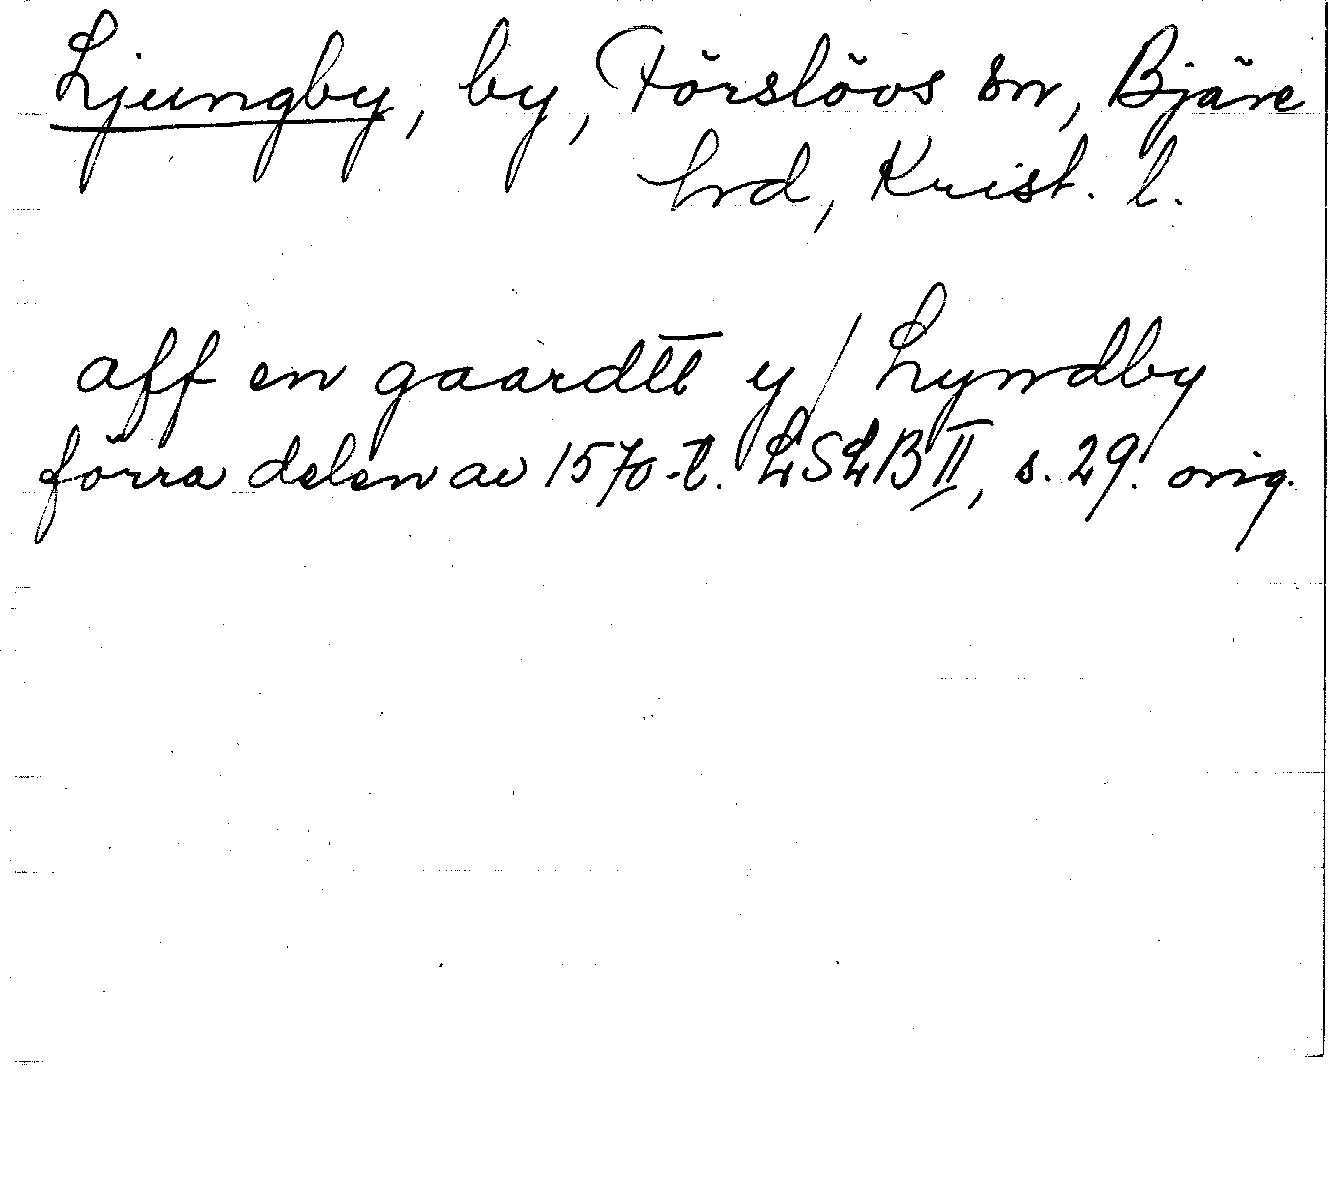 Ljungby, by, Förslövs sn, Bjäre
hrd, Krist. l.
aff en gaardtt y / Lyndby
förra delen av 1570-t. LSLB II, s. 29. orig.